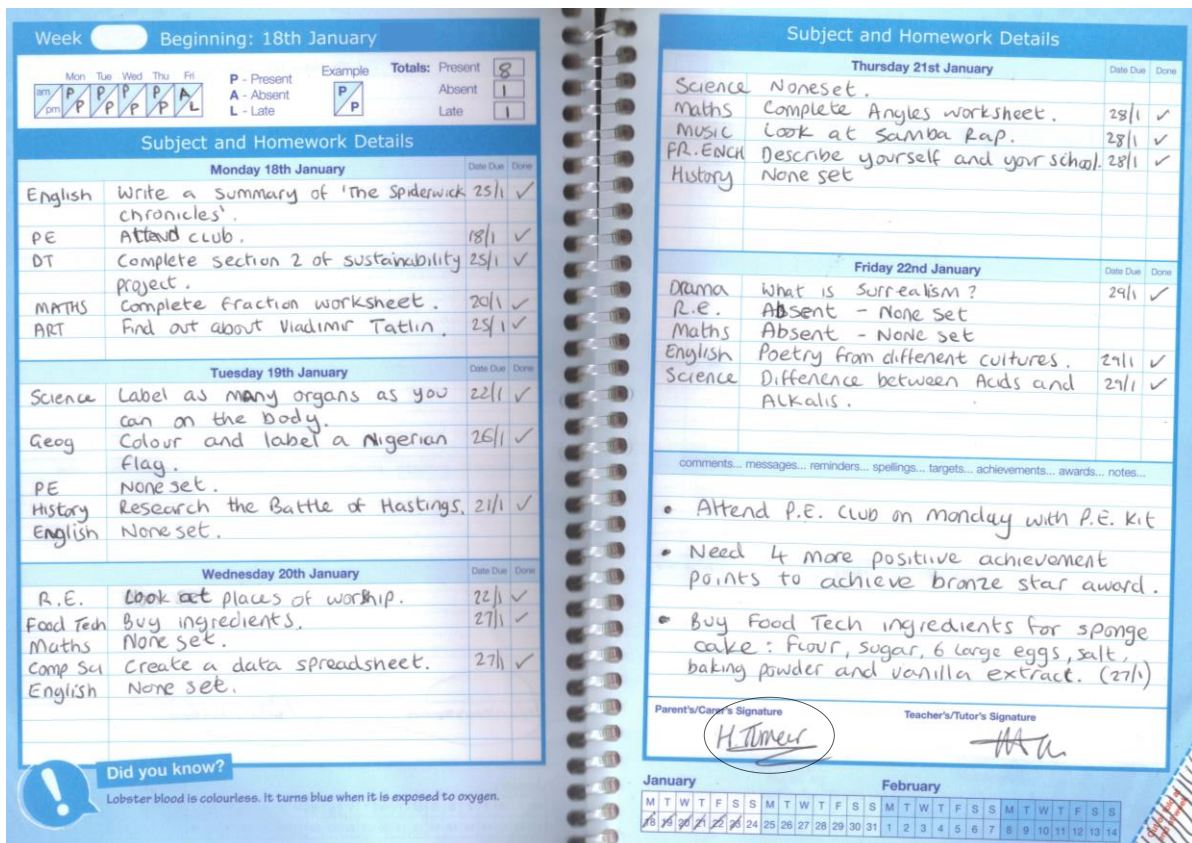 Week Beginning: 18th January
Mon Tue Wed Thu Fri
am P P P P A
pm P P P P L
P - Present
A - Absent
L - Late
Example
P
P
Totals: Present 8
Absent 1
Late 1
Subject and Homework Details
Monday 18th January Date Due Done
English Write a summary of 'The Spiderwick 25/1 ✓
chronicles'.
PE Attend club. 18/1 ✓
DT Complete section 2 of sustainability 25/1 ✓
project.
MATHS Complete fraction worksheet. 20/1 ✓
ART Find out about Vladimir Tatlin. 25/1 ✓
Tuesday 19th January Date Due Done
Science Label as many organs as you 22/1 ✓
can on the body.
Geog Colour and label a Nigerian 26/1 ✓
flag.
PE None set.
History Research the Battle of Hastings. 21/1 ✓
English None set.
Wednesday 20th January Date Due Done
R.E. Look at places of worship. 22/1 ✓
Food Tech Buy ingredients. 27/1 ✓
Maths None set.
Comp Sci Create a data spreadsheet. 27/1 ✓
English None set.
Did you know?
Lobster blood is colourless. It turns blue when it is exposed to oxygen.
Subject and Homework Details
Thursday 21st January Date Due Done
Science None set.
Maths Complete Angles worksheet. 28/1 ✓
Music Look at Samba Rap. 28/1 ✓
FR.ENCH Describe yourself and your school. 28/1 ✓
History None set
Friday 22nd January Date Due Done
Drama What is Surrealism? 29/1 ✓
R.e. Absent - None set
Maths Absent - None set
English Poetry from different cultures. 29/1 ✓
Science Difference between Acids and 29/1 ✓
Alkalis.
comments... messages... reminders... spellings... targets... achievements... awards... notes...
• Attend P.E. club on monday with P.E. Kit
• Need 4 more positiive achievement
points to achieve bronze star award.
• Buy Food Tech ingredients for sponge
cake: Flour, sugar, 6 large eggs, salt,
baking powder and vanilla extract. (27/1)
Parent's/Carer's Signature Teacher's/Tutor's Signature
H.Turner
January February
M T W T F S S M T W T F S S M T W T F S S M T W T F S S
18 19 20 21 22 23 24 25 26 27 28 29 30 31 1 2 3 4 5 6 7 8 9 10 11 12 13 14